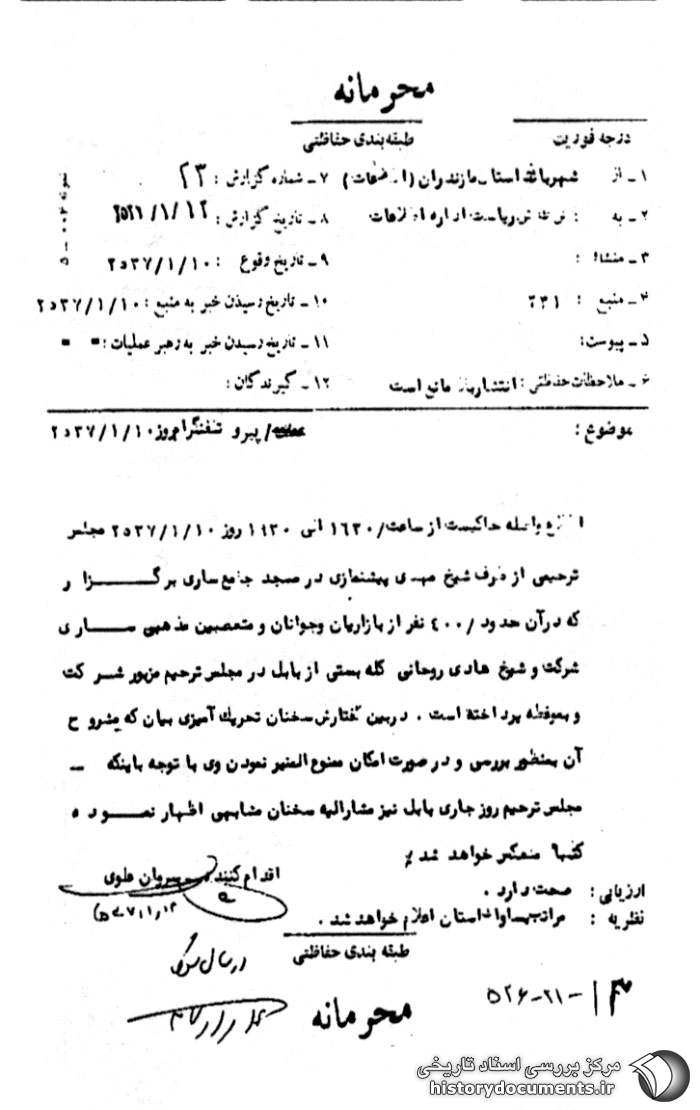 محرمانه
درجه فوریت
طبقه بندی حفاظتی
۱ـ از شهربانی استان مازندران (اطلاعات)
۷ـ شماره گزارش : ۲۳
۲ـ به : ریاست اداره اطلاعات
۸ـ تاریخ گزارش :
۳ـ منشاء :
۹ـ تاریخ وقوع : ۲۵۳۷/۱/۱۰
۴ـ منبع : ۲۳۱
۱۰ـ تاریخ رسیدن خبر به منبع : ۲۵۳۷/۱/۱۰
۵ـ پیوست:
۱۱ـ تاریخ رسیدن خبر به رهبر عملیات :
۶ـ ملاحظات حفاظتی : انتشار بلا مانع است
۱۲ـ گیرندگان :
موضوع : پیرو تلفنگرام روز ۲۵۳۷/۱/۱۰
واصله حاکیست از ساعت /۱۶۳۰ الی ۱۹۳۰ روز ۲۵۳۷/۱/۱۰ مجلس
ترحیمی از طرف شیخ مهدی پیشنمازی در مسجد جامع ساری برگزار
که در آن حدود /۴۰۰ نفر از بازاریان وجوانان و متعصبین مذهبی ساری
شرکت و شیخ هادی روحانی گله بستی از بابل در مجلس ترحیم مزبور شرکت
و بموعظه پرداخته است . دربین گفتارش سخنان تحریک آمیزی بیان که مشروح
آن بمنظور بررسی و در صورت امکان ممنوع المنبر نمودن وی با توجه باینکه ـ
مجلس ترحیم روز جاری بابل نیز مشارالیه سخنان مشابهی اظهار نموده
کتبا منعکس خواهد شد
اقدام کننده ـ سروان علوی
ارزیابی : صحت دارد .
نظریه : مراتب بساواک استان اعلام خواهد شد .
طبقه بندی حفاظتی
محرمانه
۵۲۶-۲۱-
مرکز بررسی اسناد تاریخی
historydocuments.ir